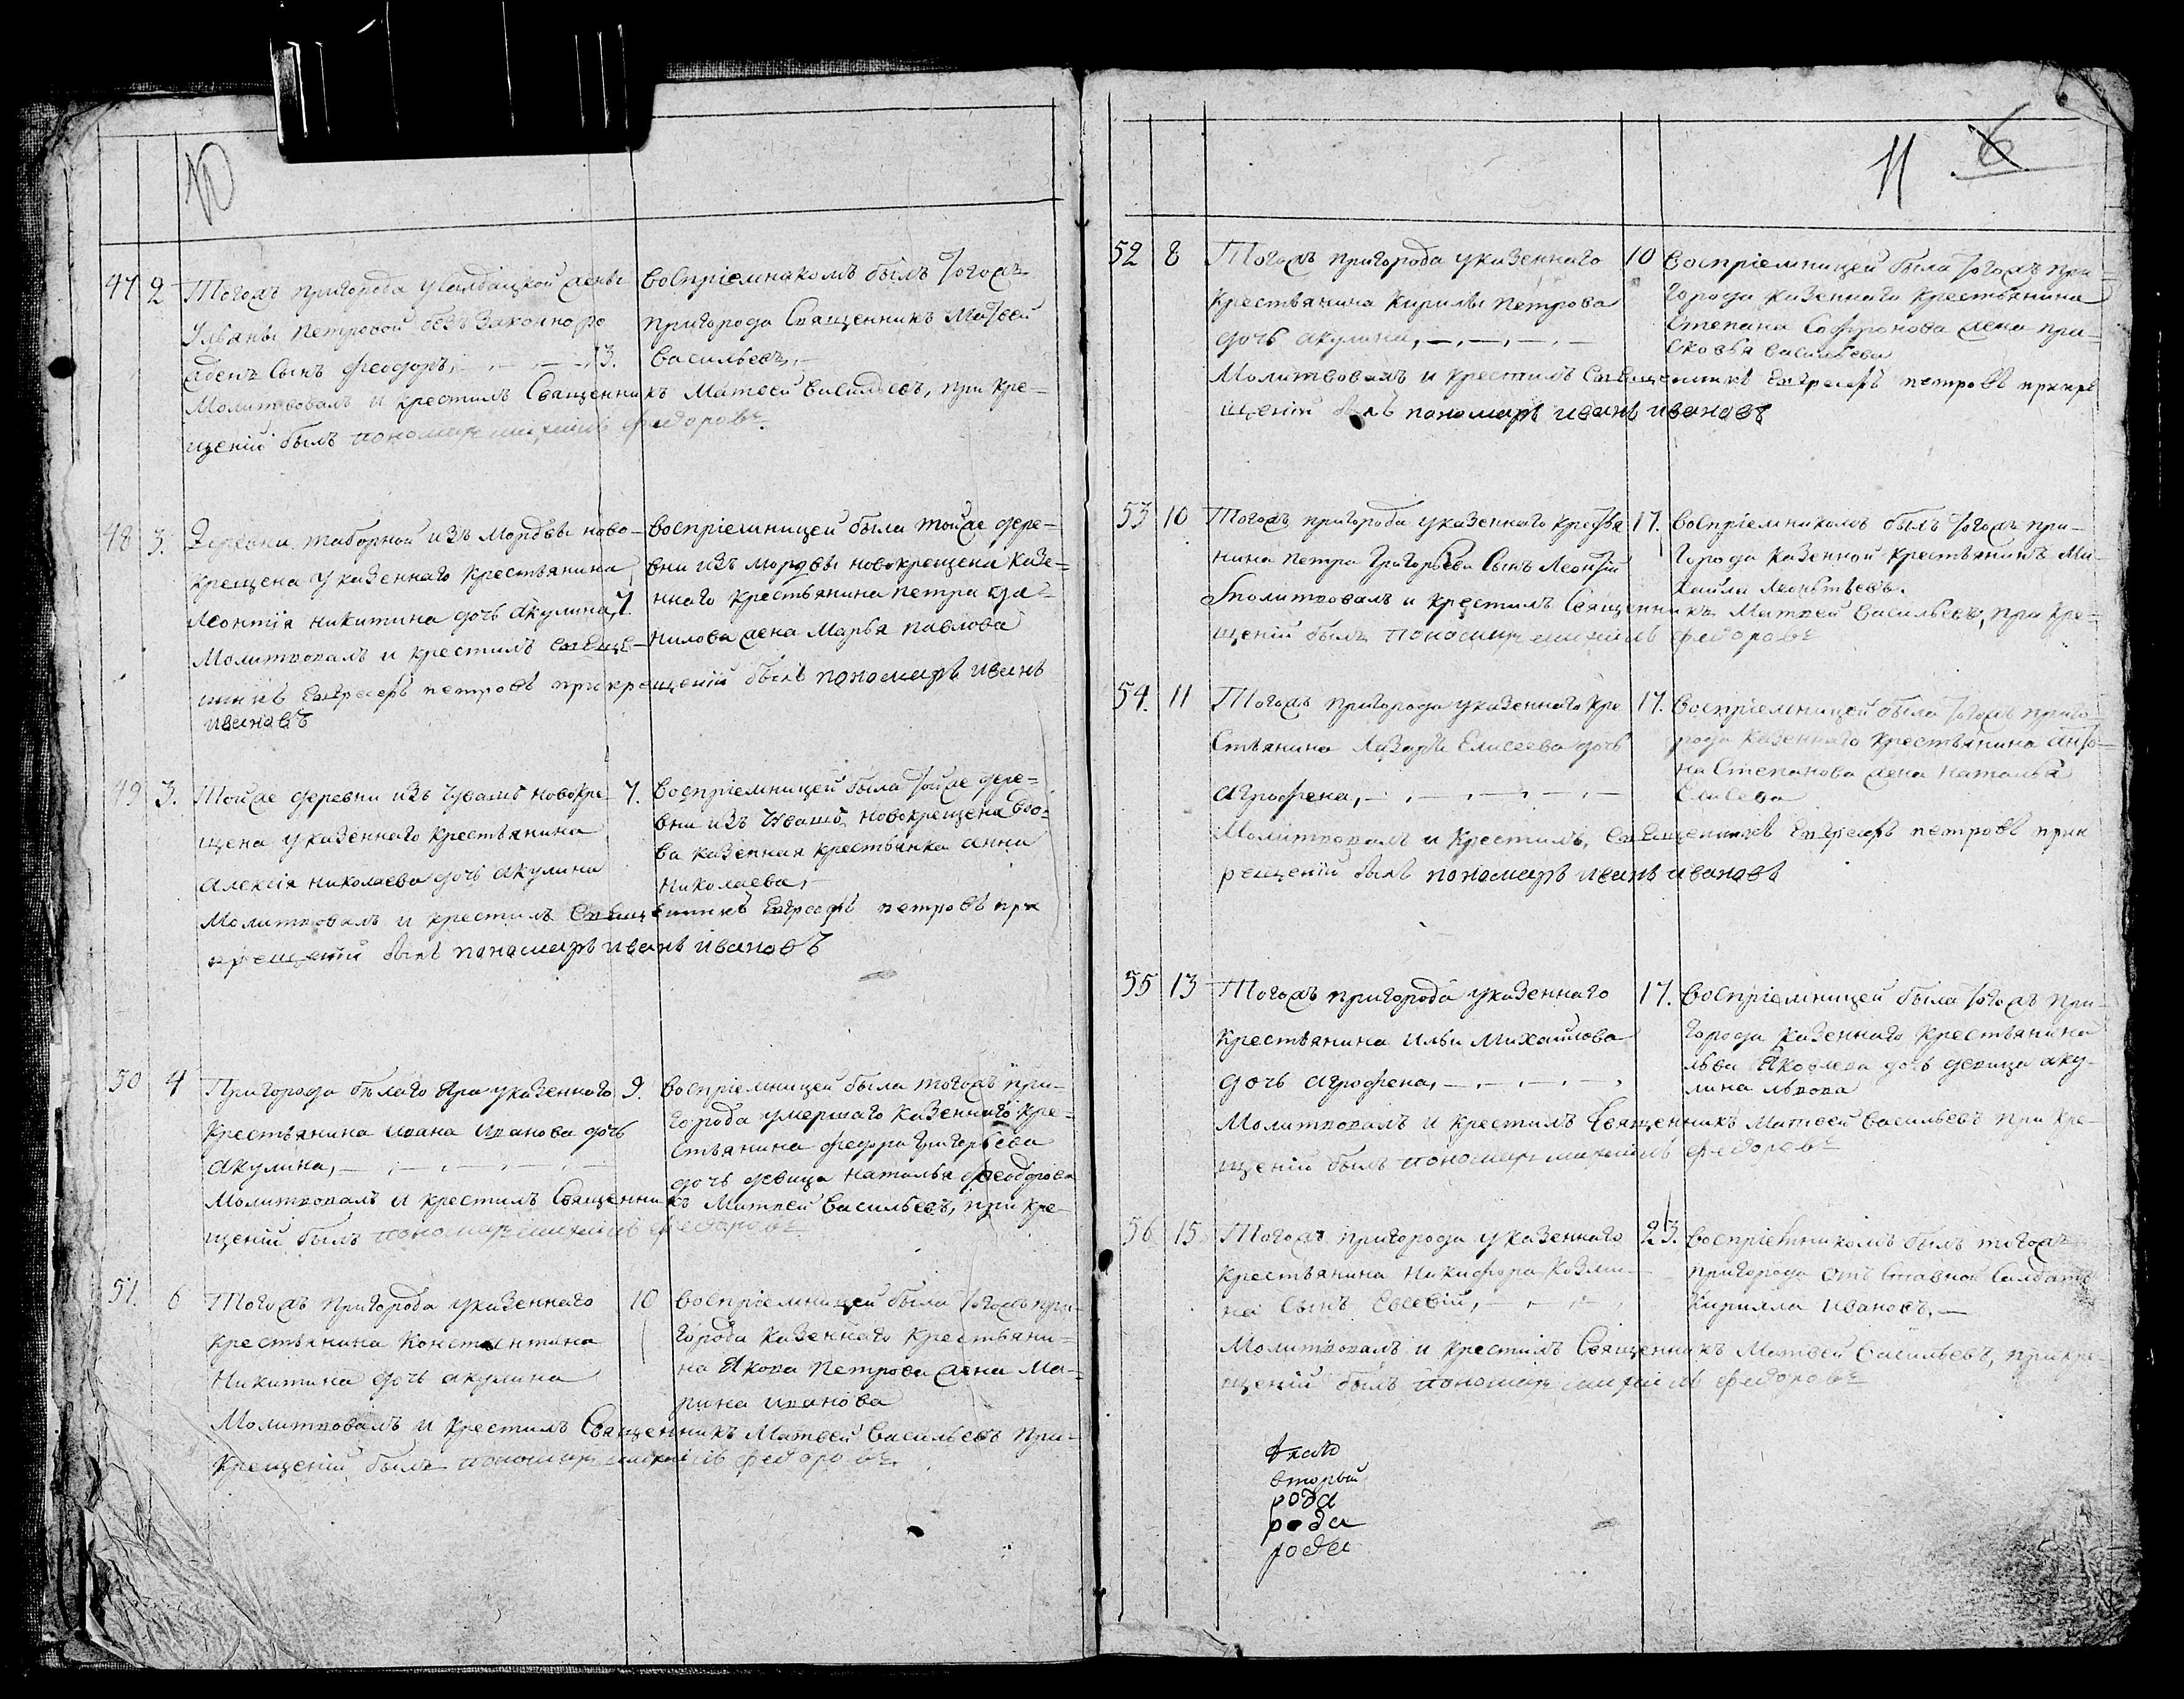 10
47 2 Тогожъ пригорода у салдацкой жены
Ульяны Петровой беззаконно ро
жденъ сынъ Феодоръ, 3.
Воспріемникомъ былъ тогожъ
пригорода Священникъ Матвей
Васильевъ,
Молитвовалъ и крестилъ Священникъ Матвей Васильевъ, при кре-
щеніи былъ пономарь Михаилъ Федоровъ
48 3. Деревни Таборной изъ Мордвы ново-
крещена у казеннаго крестьянина
Леонтія Никитина дочь Акулина, 7.
Воспріемницей была тойже дере-
вни изъ мордвы новокрещена казе-
ннаго крестьянина Петра Да-
нилова жена Марья Павлова
Молитвовалъ и крестилъ Свяще-
нникъ Евграфъ Петровъ при крещеніи былъ пономарь Иванъ
Ивановъ
49 3. Тойже деревни изъ Чувашъ новокре
щена у казеннаго крестьянина
Алексія Николаева дочь Акулина
7. Воспріемницей была тойже дере-
вни изъ Чувашъ новокрещена вдо-
ва казенная крестьянка Анна
Николаева,
Молитвовалъ и крестилъ Священникъ Евграфъ Петровъ при
крещеніи былъ пономарь Иванъ Ивановъ
50 4 Пригорода Белаго Яра у казеннаго
крестьянина Ивана Иванова дочь
Акулина,
9. Воспріемницей была тогожъ при-
города умершаго казеннаго кре-
стьянина Федора Григорьева
дочь девица Наталья Феодорова
Молитвовалъ и крестилъ Священникъ Матвей Васильевъ, при кре-
щеніи былъ пономарь Михаилъ Федоровъ
51. 6 Тогожъ пригорода у казеннаго
крестьянина Константина
Никитина дочь Акулина
10 Воспріемницей была тогожъ при-
города казеннаго крестьяни-
на Якова Петрова жена Ма-
рина Иванова
Молитвовалъ и крестилъ Священникъ Матвей Васильевъ при-
крещеніи былъ пономарь Михаилъ Федоровъ.
11 6
52 8 Тогожъ пригорода у казеннаго
крестьянина Кирилы Петрова
дочь Акулина,
10 Воспріемницей была тогожъ при-
города казеннаго крестьянина
Степана Софронова жена Пра-
сковья Васильева
Молитвовалъ и крестилъ Священникъ Евграфъ Петровъ при кре
щеніи былъ пономарь Иванъ Ивановъ
53 10 Тогожъ пригорода у казеннаго крестья
нина Петра Григорьева сынъ Леонтій
17. Воспріемникомъ былъ тогожъ при-
города казенной крестьянинъ Ми-
хаилъ Леонтьевъ.
Молитвовалъ и крестилъ Священникъ Матвей Васильевъ, при кре-
щеніи былъ пономарь Михаилъ Федоровъ
54. 11 Тогожъ пригорода у казеннаго кре
стьянина Лазаря Елисеева дочь
Агрофена,
17. Воспріемницей была тогожъ приго
рода казеннаго крестьянина Анто-
на Степанова жена Наталья
Елисеева
Молитвовалъ и крестилъ, Священникъ Евграфъ Петровъ при к
рещеніи былъ пономарь Иванъ Ивановъ
55 13 Тогожъ пригорода у казеннаго
крестьянина Ильи Михаилова
дочь Агрофена,
17. Воспріемницей была тогожъ при-
города казеннаго крестьянина
Льва Яковлева дочь девица Аку-
лина Львова
Молитвовалъ и крестилъ Священникъ Матвей Васильевъ при кре-
щеніи былъ пономарь Михаилъ Федоровъ
56 15 Тогожъ пригорода у казеннаго
крестьянина Никифора Козми-
на сынъ Евсевій,
23. Воспріемникомъ былъ тогожъ
пригорода отъ ставной салдатъ
Кирилла Ивановъ,
Молитвовалъ и крестилъ Священникъ Матвей Васильевъ, при кре-
щеніи былъ пономарь Михаилъ Федоровъ
вторый
рода
рода
рода